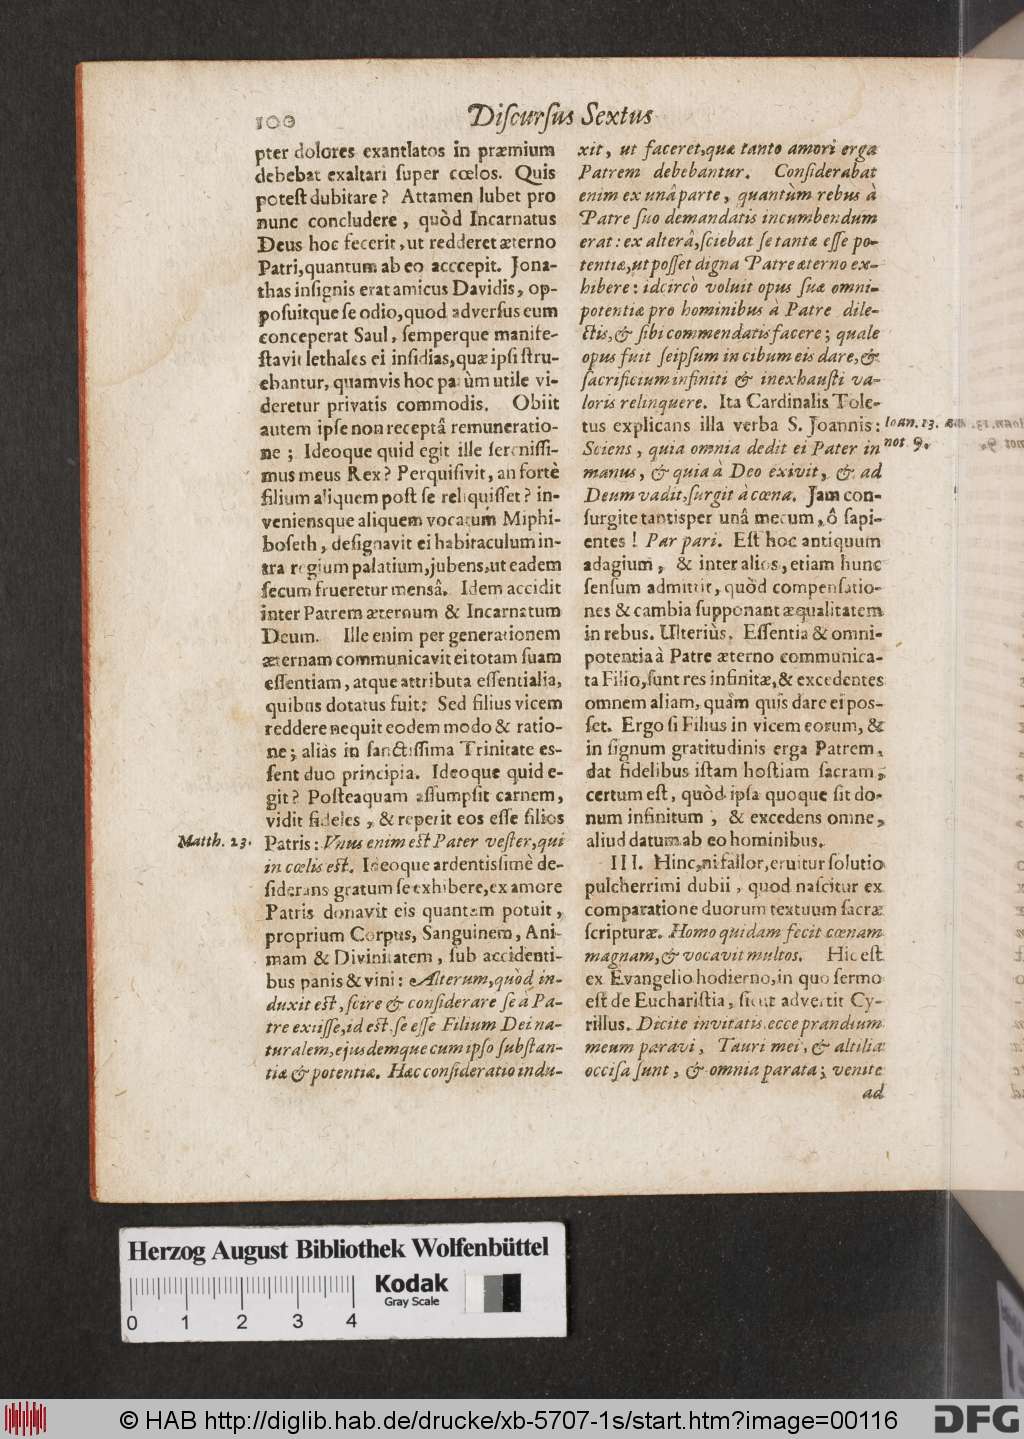 100
Discursus Sextus
pter dolores exantlatos in præmium
debebat exaltari super cœlos. Quis
potest dubitare? Attamen lubet pro
nunc concludere, quòd Incarnatus
Deus hoc fecerit, ut redderet æterno
Patri, quantum ab eo acccepit. Jona-
thas insignis erat amicus Davidis, op-
posuitque se odio, quod adversus eum
conceperat Saul, semperque manife-
stavit lethales ei insidias, quæ ipsi stru-
ebantur, quamvis hoc parùm utile vi-
deretur privatis commodis. Obiit
autem ipse non receptâ remuneratio-
ne; Ideoque quid egit ille serenissi-
mus meus Rex? Perquisivit, an fortè
filium aliquem post se reliquisset? in-
veniensque aliquem vocatum Miphi-
boseth, designavit ei habitaculum in-
tra regium palatium, jubens, ut eadem
secum frueretur mensâ. Idem accidit
inter Patrem æternum & Incarnatum
Deum. Ille enim per generationem
æternam communicavit ei totam suam
essentiam, atque attributa essentialia,
quibus dotatus fuit: Sed filius vicem
reddere nequit eodem modo & ratio-
ne; aliàs in sanctissima Trinitate es-
sent duo principia. Ideoque quid e-
git? Posteaquam assumpsit carnem,
vidit fideles, & reperit eos esse filios
Matth. 23.
Patris: Unus enim est Pater vester, qui
in cœlis est. Ideoque ardentissimè de-
siderans gratum se exhibere, ex amore
Patris donavit eis quantum potuit,
proprium Corpus, Sanguinem, Ani-
mam & Divinitatem, sub accidenti-
bus panis & vini: Alterum, quòd in-
duxit est, scire & considerare se à Pa-
tre exiisse, id est, se esse Filium Dei na-
turalem, ejusdemque cum ipso substan-
tiæ & potentiæ. Hæc consideratio indu-
xit, ut faceret, quæ tanto amori erga
Patrem debebantur. Considerabat
enim ex unâ parte, quantùm rebus à
Patre suo demandatis incumbendum
erat: ex alterâ, sciebat se tantæ esse po-
tentiæ, ut posset digna Patre æterno ex-
hibere: idcircò voluit opus suæ omni-
potentiæ pro hominibus à Patre dile-
ctis, & sibi commendatis facere; quale
opus fuit seipsum in cibum eis dare, &
sacrificium infiniti & inexhausti va-
loris relinquere. Ita Cardinalis Tole-
tus explicans illa verba S. Joannis:
Ioan. 13. an-
not. 9.
Sciens, quia omnia dedit ei Pater in
manus, & quia à Deo exivit, & ad
Deum vadit, surgit à cœna. Jam con-
surgite tantisper unâ mecum, ô sapi-
entes! Par pari. Est hoc antiquum
adagium, & inter alios, etiam hunc
sensum admittit, quòd compensatio-
nes & cambia supponant æqualitatem
in rebus. Ulteriùs. Essentia & omni-
potentia à Patre æterno communica-
ta Filio, sunt res infinitæ, & excedentes
omnem aliam, quàm quis dare ei pos-
set. Ergo si Filius in vicem eorum, &
in signum gratitudinis erga Patrem,
dat fidelibus istam hostiam sacram,
certum est, quòd ipsa quoque sit do-
num infinitum, & excedens omne,
aliud datum ab eo hominibus.
III. Hinc, ni fallor, eruitur solutio
pulcherrimi dubii, quod nascitur ex
comparatione duorum textuum sacræ
scripturæ. Homo quidam fecit cœnam
magnam, & vocavit multos. Hic est
ex Evangelio hodierno, in quo sermo
est de Eucharistia, sicut advertit Cy-
rillus. Dicite invitatis, ecce prandium
meum paravi, Tauri mei, & altilia
occisa sunt, & omnia parata; venite
ad
Herzog August Bibliothek Wolfenbüttel
Kodak
Gray Scale
0 1 2 3 4
© HAB http://diglib.hab.de/drucke/xb-5707-1s/start.htm?image=00116
DFG